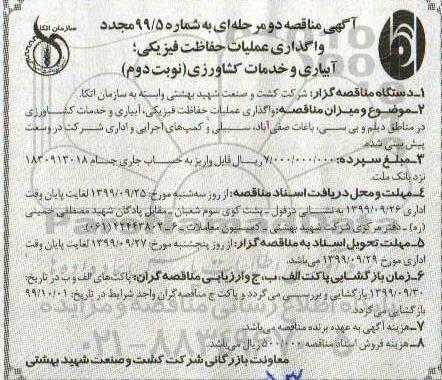 آگهی مناقصه دو مرحله‌ای به شماره ۹۹/۵ مجدد
واگذاری عملیات حفاظت فیزیکی؛
آبیاری و خدمات کشاورزی (نوبت دوم)
سازمان اتکا
۱ـ دستگاه مناقصه گزار: شرکت کشت و صنعت شهید بهشتی وابسته به سازمان اتکا.
۲ـ موضوع و میزان مناقصه: واگذاری عملیات حفاظت فیزیکی، آبیاری و خدمات کشاورزی
در مناطق دیلم و بی بسی، باغات صفی‌آباد، سبیلی و کمپ‌های اجرایی و اداری شرکت در وسعت
پیش بینی شده.
۳ـ مبلغ سپرده: ۷/۰۰۰/۰۰۰/۰۰۰ ریال قابل واریز به حساب جاری جام ۱۸۳۰۹۱۳۰۱۸
نزد بانک ملت.
۴ـ مهلت و محل دریافت اسناد مناقصه: از روز سه‌شنبه مورخ: ۱۳۹۹/۰۹/۲۵ لغایت پایان وقت
اداری ۱۳۹۹/۰۹/۲۶ به نشانی دزفول ـ پشت کوی سوم شعبان ـ مقابل پادگان شهید مصطفی خمینی
(ره) ـ دفتر مرکزی شرکت شهید بهشتی ـ کمیسیون معاملات ـ ۶-۴۲۴۴۳۸۰۲ (۰۶۱)
۵ـ مهلت تحویل اسناد به مناقصه گزار: از روز پنجشنبه مورخ: ۱۳۹۹/۰۹/۲۷ لغایت پایان وقت
اداری مورخ ۱۳۹۹/۰۹/۲۹ می‌باشد.
۶ـ زمان بازگشایی پاکت الف، ب، ج و ارزیابی مناقصه گران: پاکت‌های الف و ب در تاریخ:
۱۳۹۹/۰۹/۳۰ بازگشایی و بررسی می گردد و پاکت ج مناقصه گران واجد شرایط در تاریخ: ۹۹/۱۰/۰۱
بازگشایی می گردد.
۷ـ هزینه آگهی به عهده برنده مناقصه می‌باشد.
۸ـ هزینه فروش اسناد مناقصه ۵۰۰/۰۰۰ ریال می‌باشد.
معاونت بازرگانی شرکت کشت و صنعت شهید بهشتی